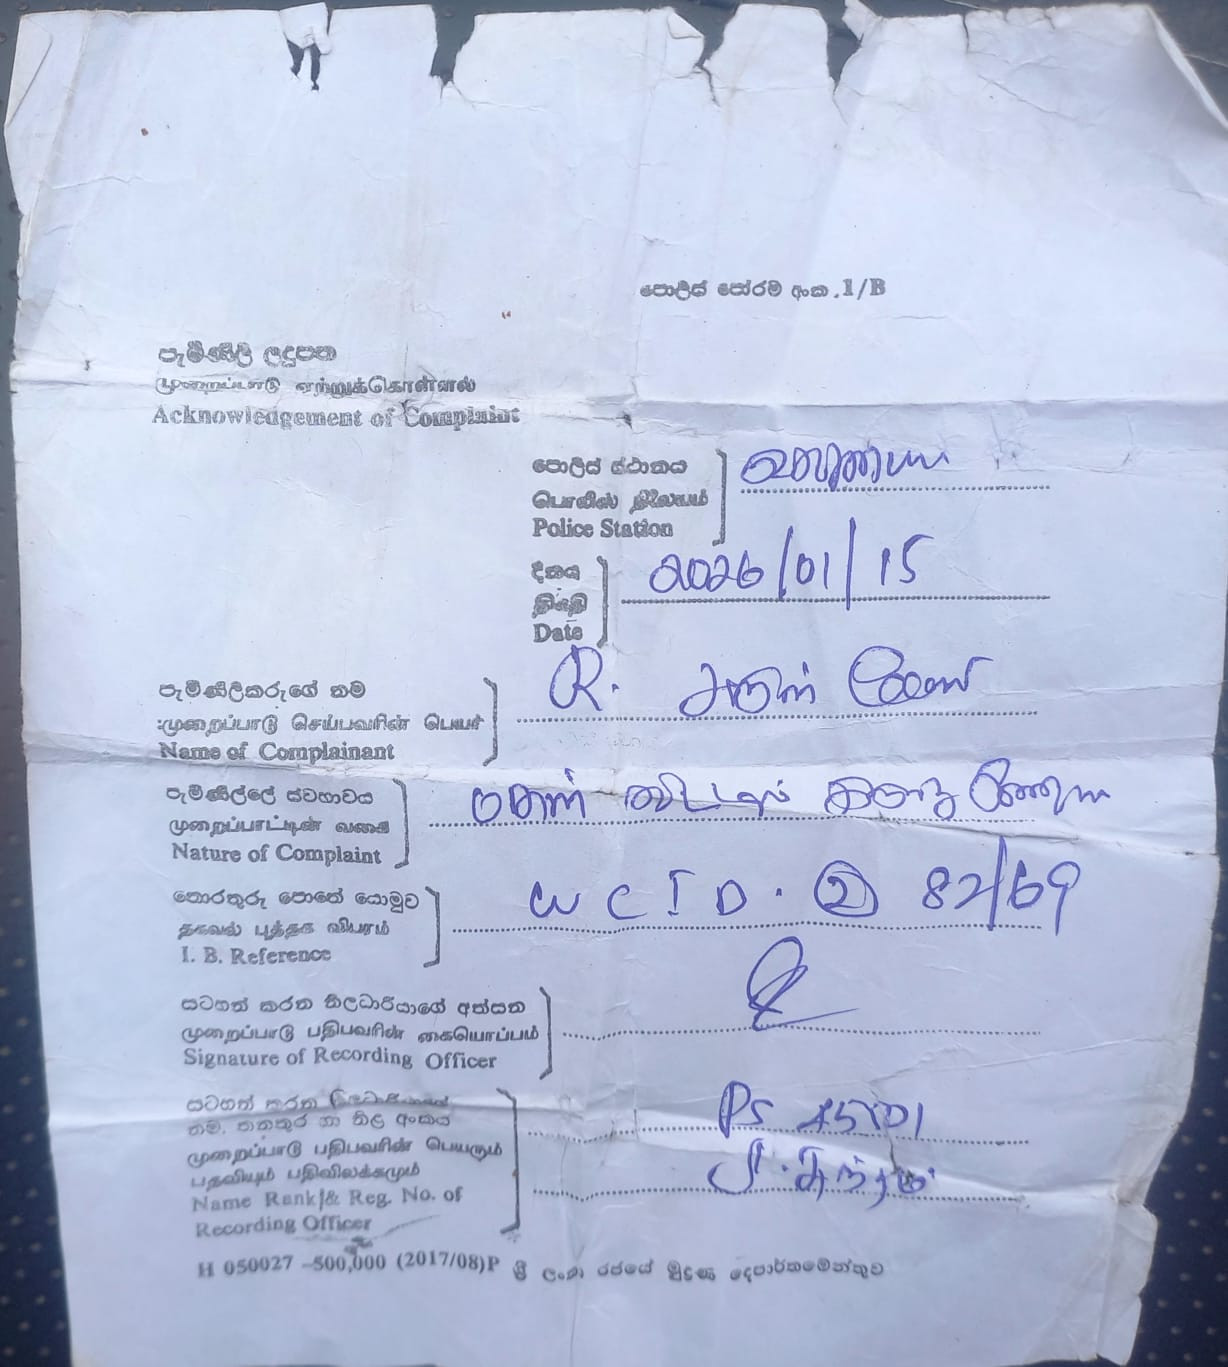 පොලිස් පෝරම අංක .1/B
පැමිණිලි ලදුපත
முறைப்பாடு ஏற்றுக்கொள்ளல்
Acknowledgement of Complaint
පොලිස් ස්ථානය
பொலிஸ் நிலையம்
Police Station
දිනය
திகதி
Date
2026/01/15
පැමිණිලිකරුගේ නම
முறைப்பாடு செய்பவரின் பெயர்
Name of Complainant
R.
පැමිණිල්ලේ ස්වභාවය
முறைப்பாட்டின் வகை
Nature of Complaint
තොරතුරු පොතේ යොමුව
தகவல் புத்தக விபரம்
I. B. Reference
W C I D . 2 82/69
සටහන් කරන නිලධාරියාගේ අත්සන
முறைப்பாடு பதிபவரின் கையொப்பம்
Signature of Recording Officer
සටහන් කරන නිලධාරියාගේ
නම, තනතුර හා නිල අංකය
முறைப்பாடு பதிபவரின் பெயரும்
பதவியும் பதிவிலக்கமும்
Name Rank & Reg. No. of
Recording Officer
PS
H 050027 –500,000 (2017/08)P ශ්‍රී ලංකා රජයේ මුද්‍රණ දෙපාර්තමේන්තුව